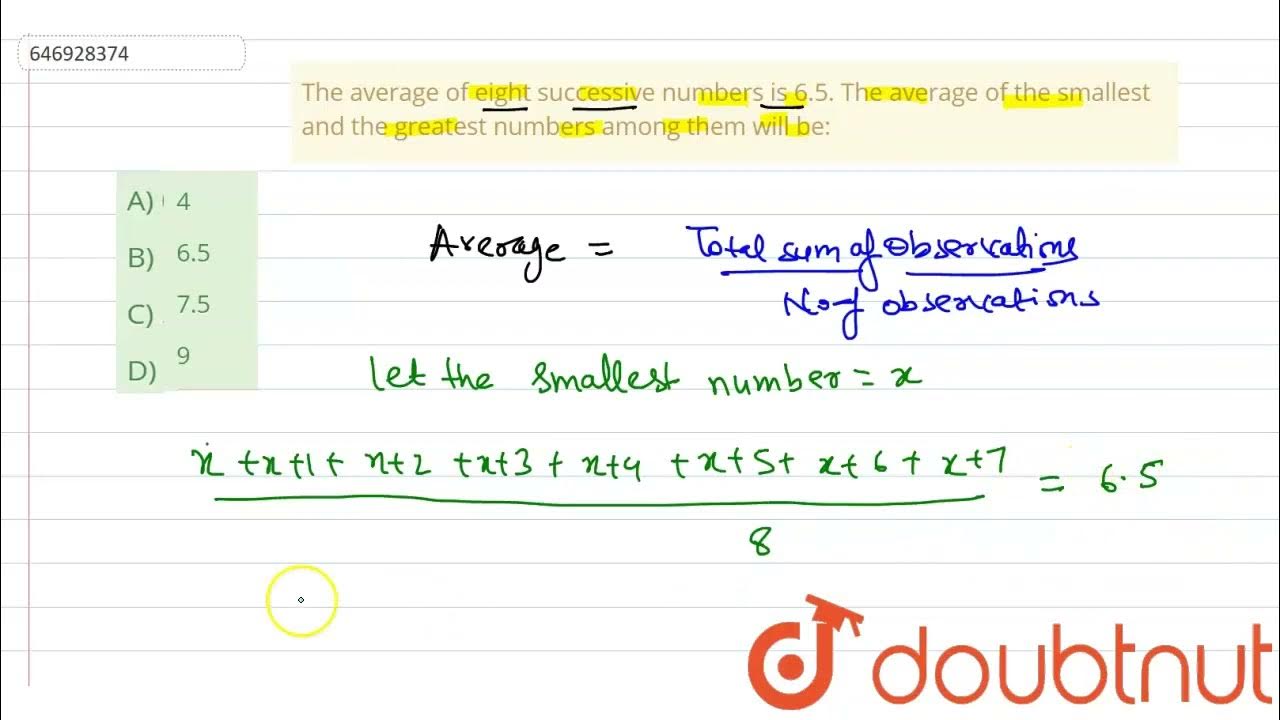 646928374
The average of eight successive numbers is 6.5. The average of the smallest
and the greatest numbers among them will be:
A) 4
B) 6.5
C) 7.5
D) 9
Average = Total sum of Observations
No of observations
let the smallest number = x
x + x+1 + x+2 + x+3 + x+4 + x+5 + x+6 + x+7 = 6.5
8
doubtnut